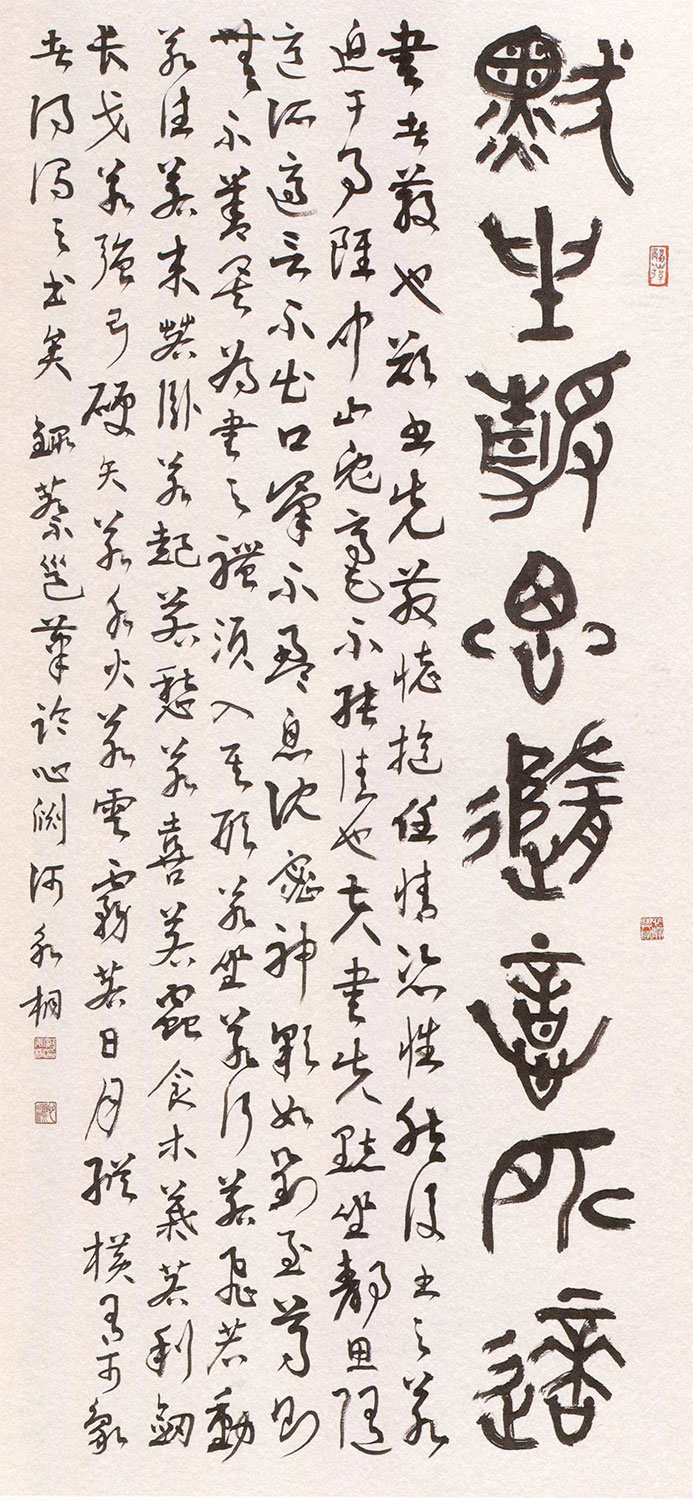 默坐靜思隨意所適
書者散也欲書先散懷抱任情恣性然後書之若
迫于事雖中山兔毫不能佳也夫書先默坐靜思隨
意所適言不出口氣不盈息沈密神彩如對至尊則
無不善矣爲書之體須入其形若坐若行若飛若動
若往若來若臥若起若愁若喜若蟲食木葉若利劍
長戈若强弓硬矢若水火若雲霧若日月縱橫有可象
者得謂之書矣 錄蔡邕筆論 心 河永桐